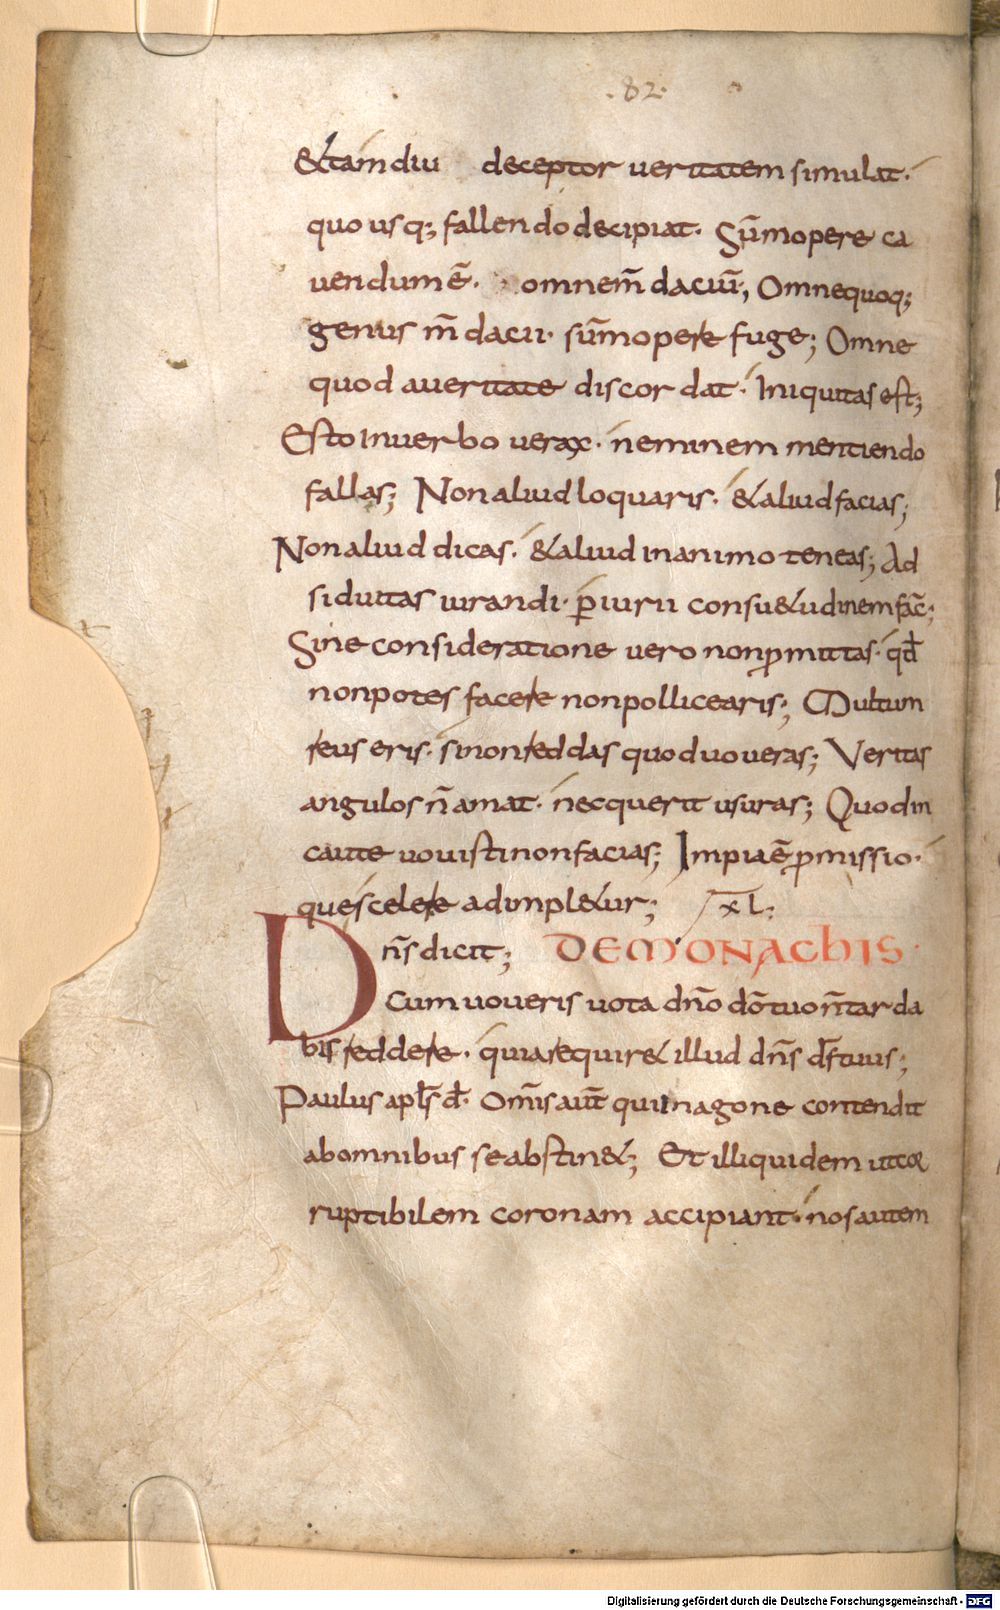 .82.
&tamdiu deceptor ueritatem simulat.
quo usq; fallendo decipiat. Sūmopere ca
uendum ē. omne m̄daciū, Omne quoq;
genus m̄dacii. sūmopere fuge; Omne
quod a ueritate discordat. Iniquitas est;
Esto In uerbo uerax. neminem mentiendo
fallas; Non aliud loquaris. & aliud facias;
Non aliud dicas. & aliud in animo teneas; Ad
siduitas iurandi. p̄iurii consu&udinem fac̄;
Sine consideratione uero non p̄mittas. qđ
non potes facere non pollicearis; Multum
reus eris. si non reddas quod uoueras; Veritas
angulos n̄ amat. nec querit usuras; Quod in
caute uouisti non facias; Impia ē p̄missio.
que scelere adimpl&ur; XL;
Dn̄s dicit; DE MONACHIS
Cum uoueris uota dn̄o dō tuo n̄ tarda
bis reddere. quia requir& illud dn̄s ds̄ tuus;
Paulus apls̄ đ. Om̄is aut̄ qui in agone contendit
ab omnibus se abstin&; Et illi quidem ut cor
ruptibilem coronam accipiant. nos autem
Digitalisierung gefördert durch die Deutsche Forschungsgemeinschaft - DFG